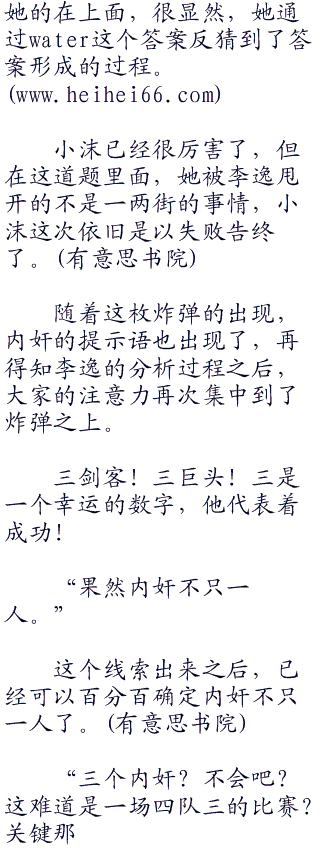 她的在上面，很显然，她通
过water这个答案反猜到了答
案形成的过程。
(www.heihei66.com)
小沫已经很厉害了，但
在这道题里面，她被李逸甩
开的不是一两街的事情，小
沫这次依旧是以失败告终
了。(有意思书院)
随着这枚炸弹的出现，
内奸的提示语也出现了，再
得知李逸的分析过程之后，
大家的注意力再次集中到了
炸弹之上。
三剑客！三巨头！三是
一个幸运的数字，他代表着
成功！
“果然内奸不只一
人。”
这个线索出来之后，已
经可以百分百确定内奸不只
一人了。(有意思书院)
“三个内奸？不会吧？
这难道是一场四队三的比赛？
关键那